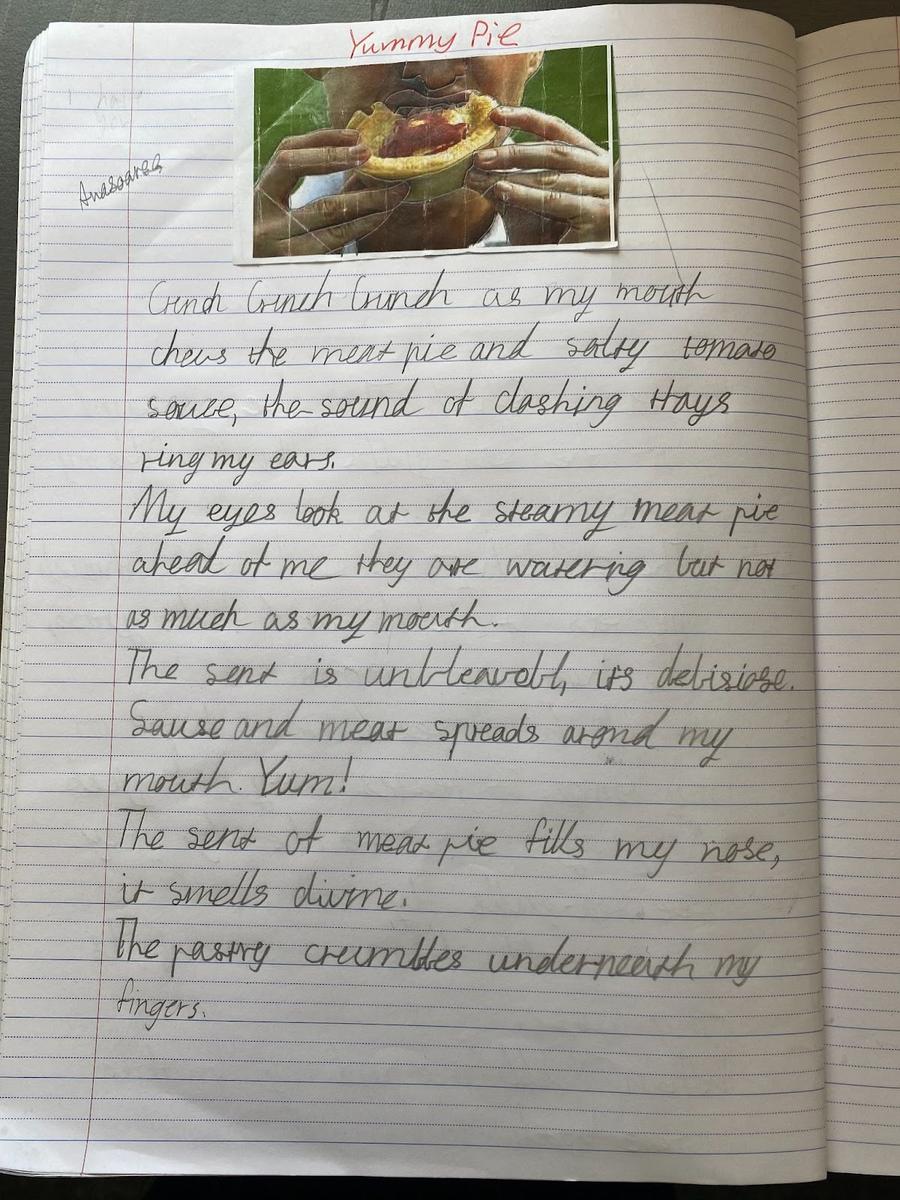 Yummy Pie
Crnch Crnch Crunch as my mouth
chews the meat pie and salty tomato
sauce, the sound of clashing trays
ring my ears.
My eyes look at the steamy meat pie
ahead of me they are watering but not
as much as my mouth.
The sent is unbleavebl, its delisiose.
Sause and meat spreads arond my
mouth. Yum!
The sent of meat pie fills my nose,
it smells divine.
The pastry crumbles underneath my
fingers.